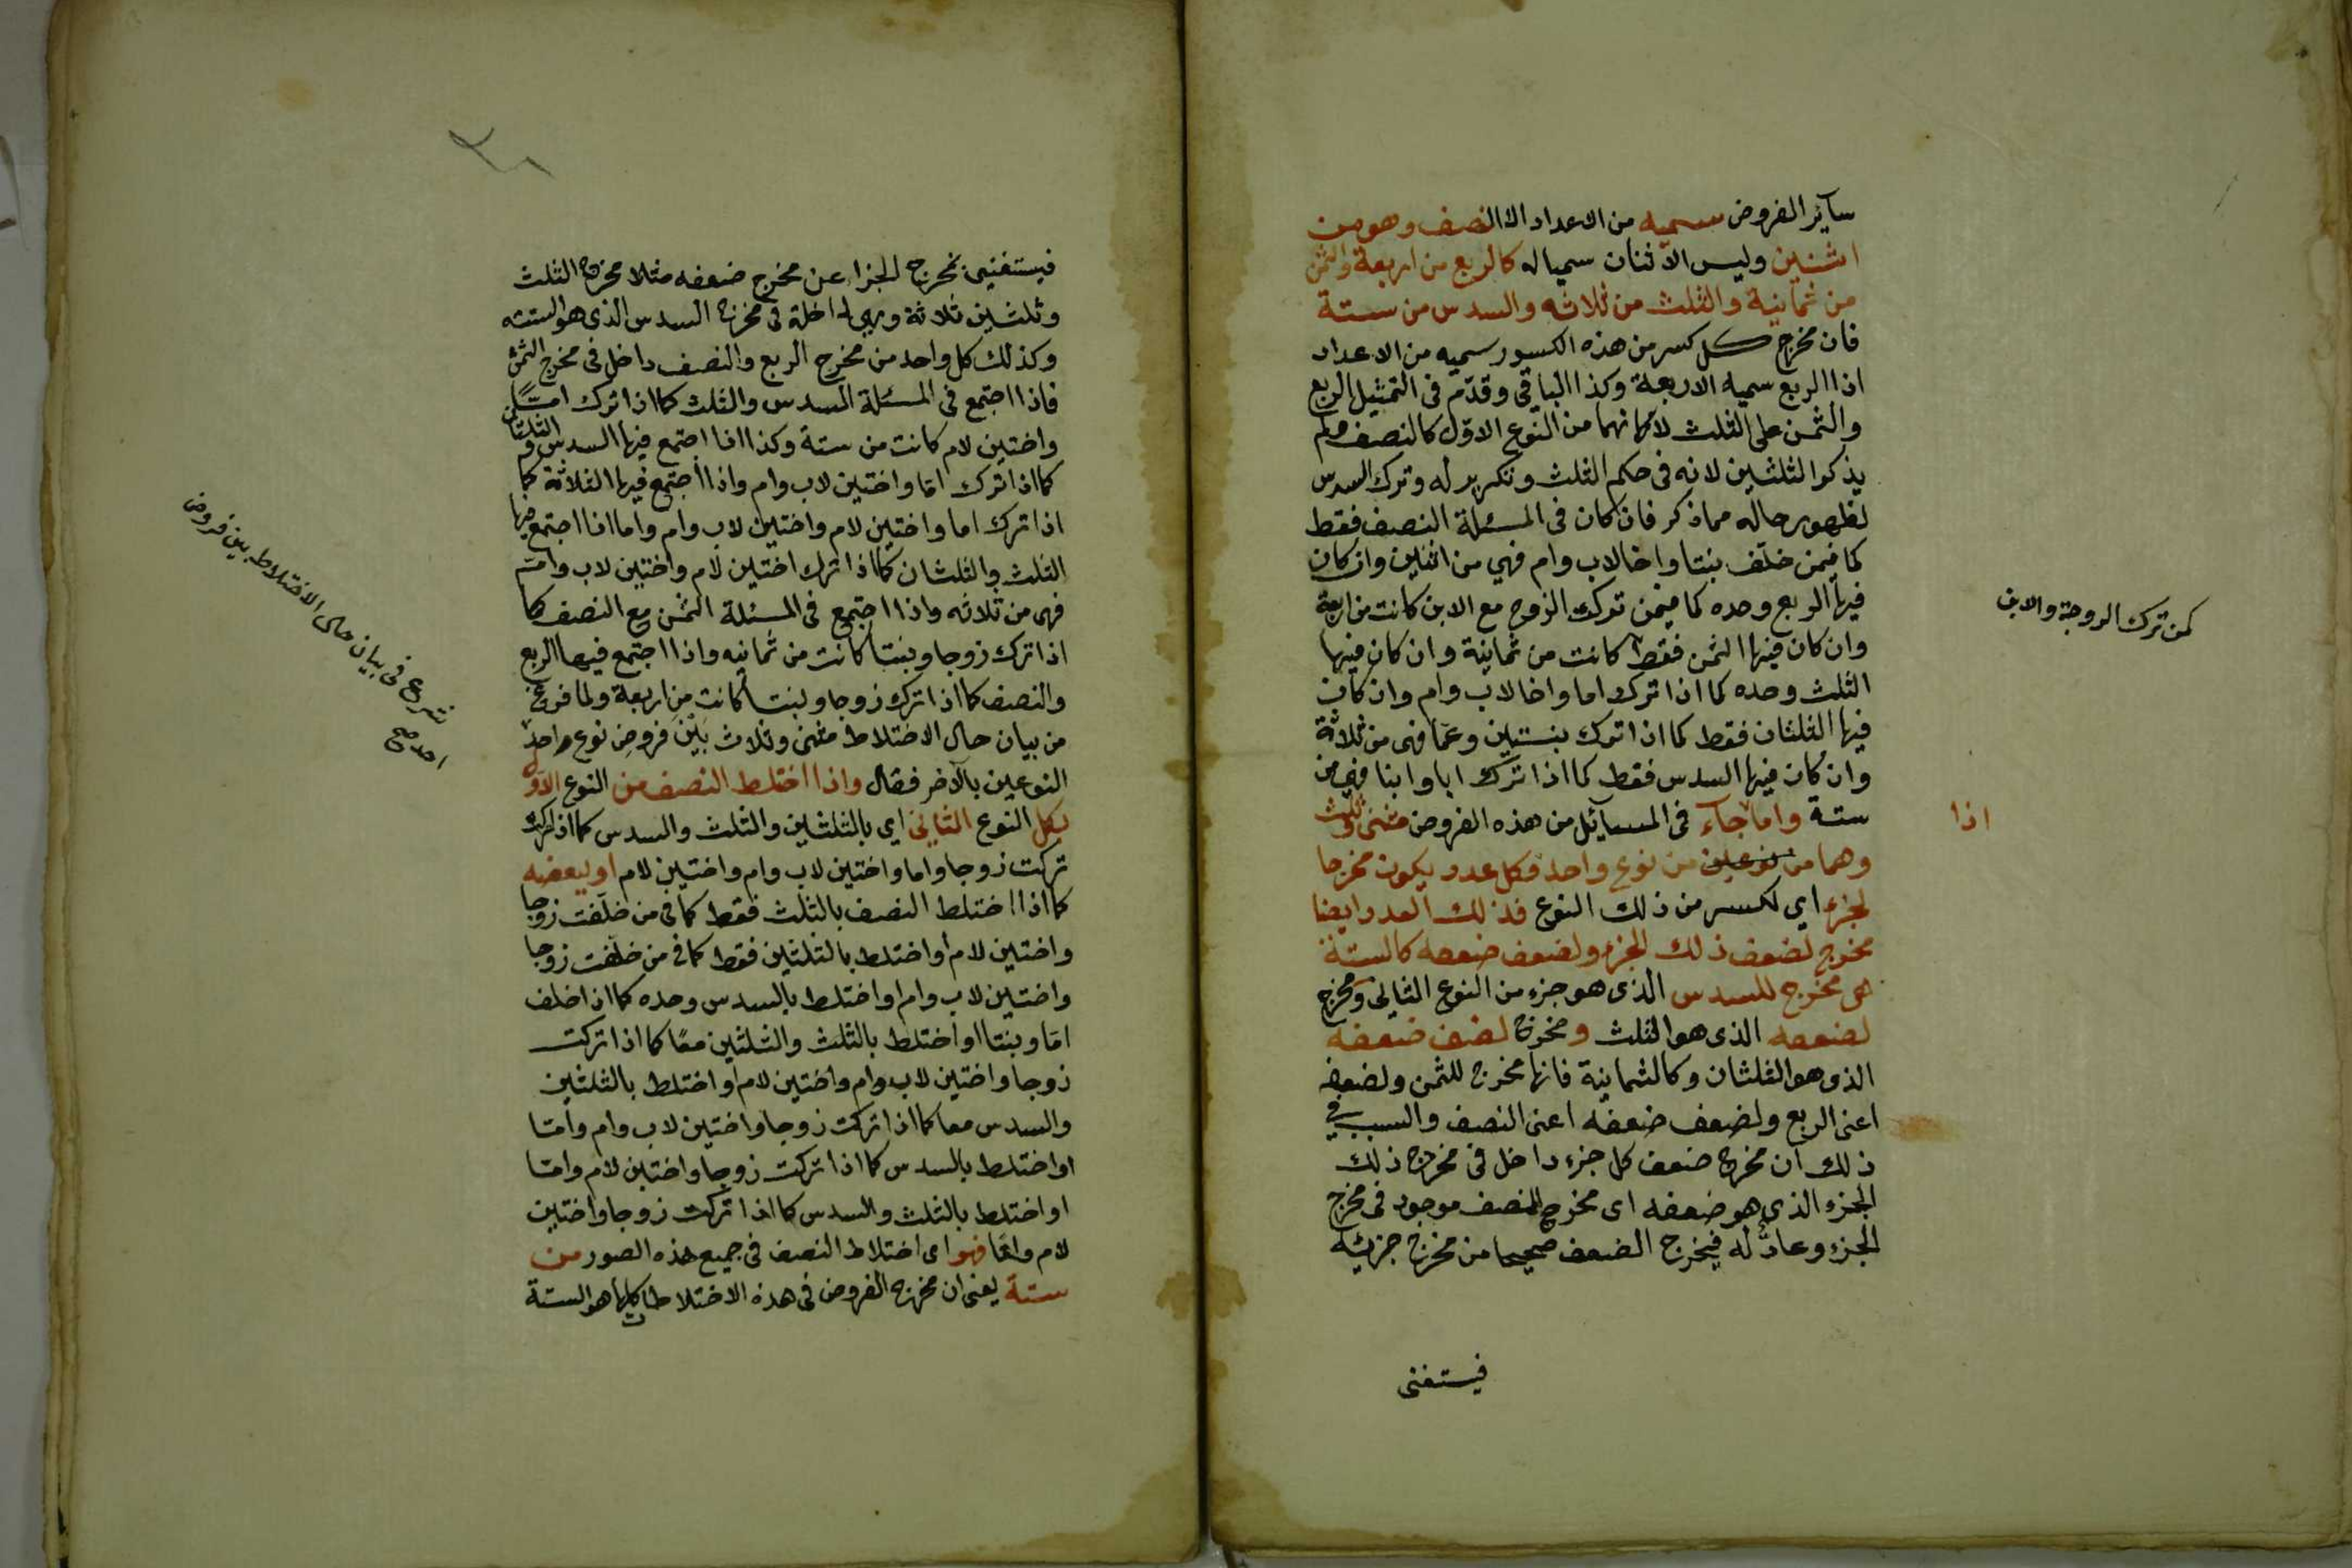 سآئر الفروض سميه من الاعداد الا النصف وهو من
اثنين وليس الاثنان سمياله كالربع من اربعة والثمن
من ثمانية والثلث من ثلاثه والسدس من ستة
فان مخرج كل كسر من هذه الكسور سميه من الاعداد
اذا الربع سميه الاربعة وكذا الباقي وقدّم فى التمثيل الربع
والثمن على الثلث لانهما من النوع الاوّل كالنصف ولم
يذكر الثلثين لانه فى حكم الثلث وتكرير له وترك السدس
لظهور حاله مما ذكر فان كان فى المسئلة النصف فقط
كما فيمن خلّف بنتا واخا لاب وام فهي من اثنين وان كان
فيها الربع وحده كما فيمن ترك الزوج مع الابن كانت من اربعة
كمن ترك الزوجة والابن
وان كان فيها الثمن فقط كانت من ثمانية وان كان فيها
الثلث وحده كما اذا ترك اما واخا لاب وام وان كان
فيها الثلثان فقط كما اذا ترك بنتين وعما فهى من ثلاثة
وان كان فيها السدس فقط كما اذا ترك ابا وابنا فهى من
ستة واما جاء فى المسآئل من هذه الفروض مثنى وثلث
اذا
وهما من نوعين من نوع واحد فكل عدد يكون مخرجا
لجزء اي لكسر من ذلك النوع فذلك العدد ايضا
مخرج لضعف ذلك الجزء ولضعف ضعفه كالستة
هى مخرج للسدس الذى هو جزء من النوع الثانى ومخرج
لضعفه الذى هو الثلث ومخرج لضعف ضعفه
الذى هو الثلثان وكالثمانية فانها مخرج للثمن ولضعفه
اعنى الربع ولضعف ضعفه اعنى النصف والسبب في
ذلك ان مخرج ضعف كل جزء داخل فى مخرج ذلك
الجزء الذى هو ضعفه اى مخرج للنصف موجود فى مخرج
الجزء وعادٌّ له فيخرج الضعف صحيحا من مخرج جزئه
فيستغنى
فيستغنى بمخرج الجزء عن مخرج ضعفه مثلا مخرج الثلث
وثلثين ثلاثة وهى داخلة فى مخرج السدس الذى هو الستة
وكذلك كل واحد من مخرج الربع والنصف داخل فى مخرج الثمن
فاذا اجتمع فى المسئلة السدس والثلث كما اذا ترك امّا
واختين لام كانت من ستة وكذا اذا اجتمع فيها السدس والثلثان
كما اذا ترك اما واختين لاب وام واذا اجتمع فيها الثلاثة كما
اذا ترك اما واختين لام واختين لاب وام واما اذا اجتمع فيها
الثلث والثلثان كما اذا ترك اختين لام واختين لاب وام
فهى من ثلاثه واذا اجتمع فى المسئلة الثمن مع النصف كما
اذا ترك زوجا وبنتا كانت من ثمانيه واذا اجتمع فيها الربع
والنصف كما اذا ترك زوجا وبنتا كانت من اربعة ولما فرغ
من بيان حال الاختلاط مثنى وثلاث بَيْنَ فروض نوع واحد
شرع فى بيان حال الاختلاط بين فروض
احد صح
النوعين بالآخر فقال واذا اختلط النصف من النوع الاوّل
بكل النوع الثانى اي بالثلثين والثلث والسدس كما اذا
تركت زوجا واما واختين لاب وام واختين لام او ببعضه
كما اذا اختلط النصف بالثلث فقط كما فى من خلّفت زوجا
واختين لام او اختلط بالثلثين فقط كما فى من خلّفت زوجا
واختين لاب وام او اختلط بالسدس وحده كما اذا خلف
امّا وبنتا او اختلط بالثلث والثلثين معًا كما اذا تركت
زوجا واختين لاب وام واختين لام او اختلط بالثلثين
والسدس معا كما اذا تركت زوجا واختين لاب وام وامّا
او اختلط بالسدس كما اذا تركت زوجا واختين لام وامّا
او اختلط بالثلث والسدس كما اذا تركت زوجا واختين
لام وامّا فهو اى اختلاط النصف فى جميع هذه الصور من
ستة يعنى ان مخرج الفروض فى هذه الاختلاطات كلها هو الستة